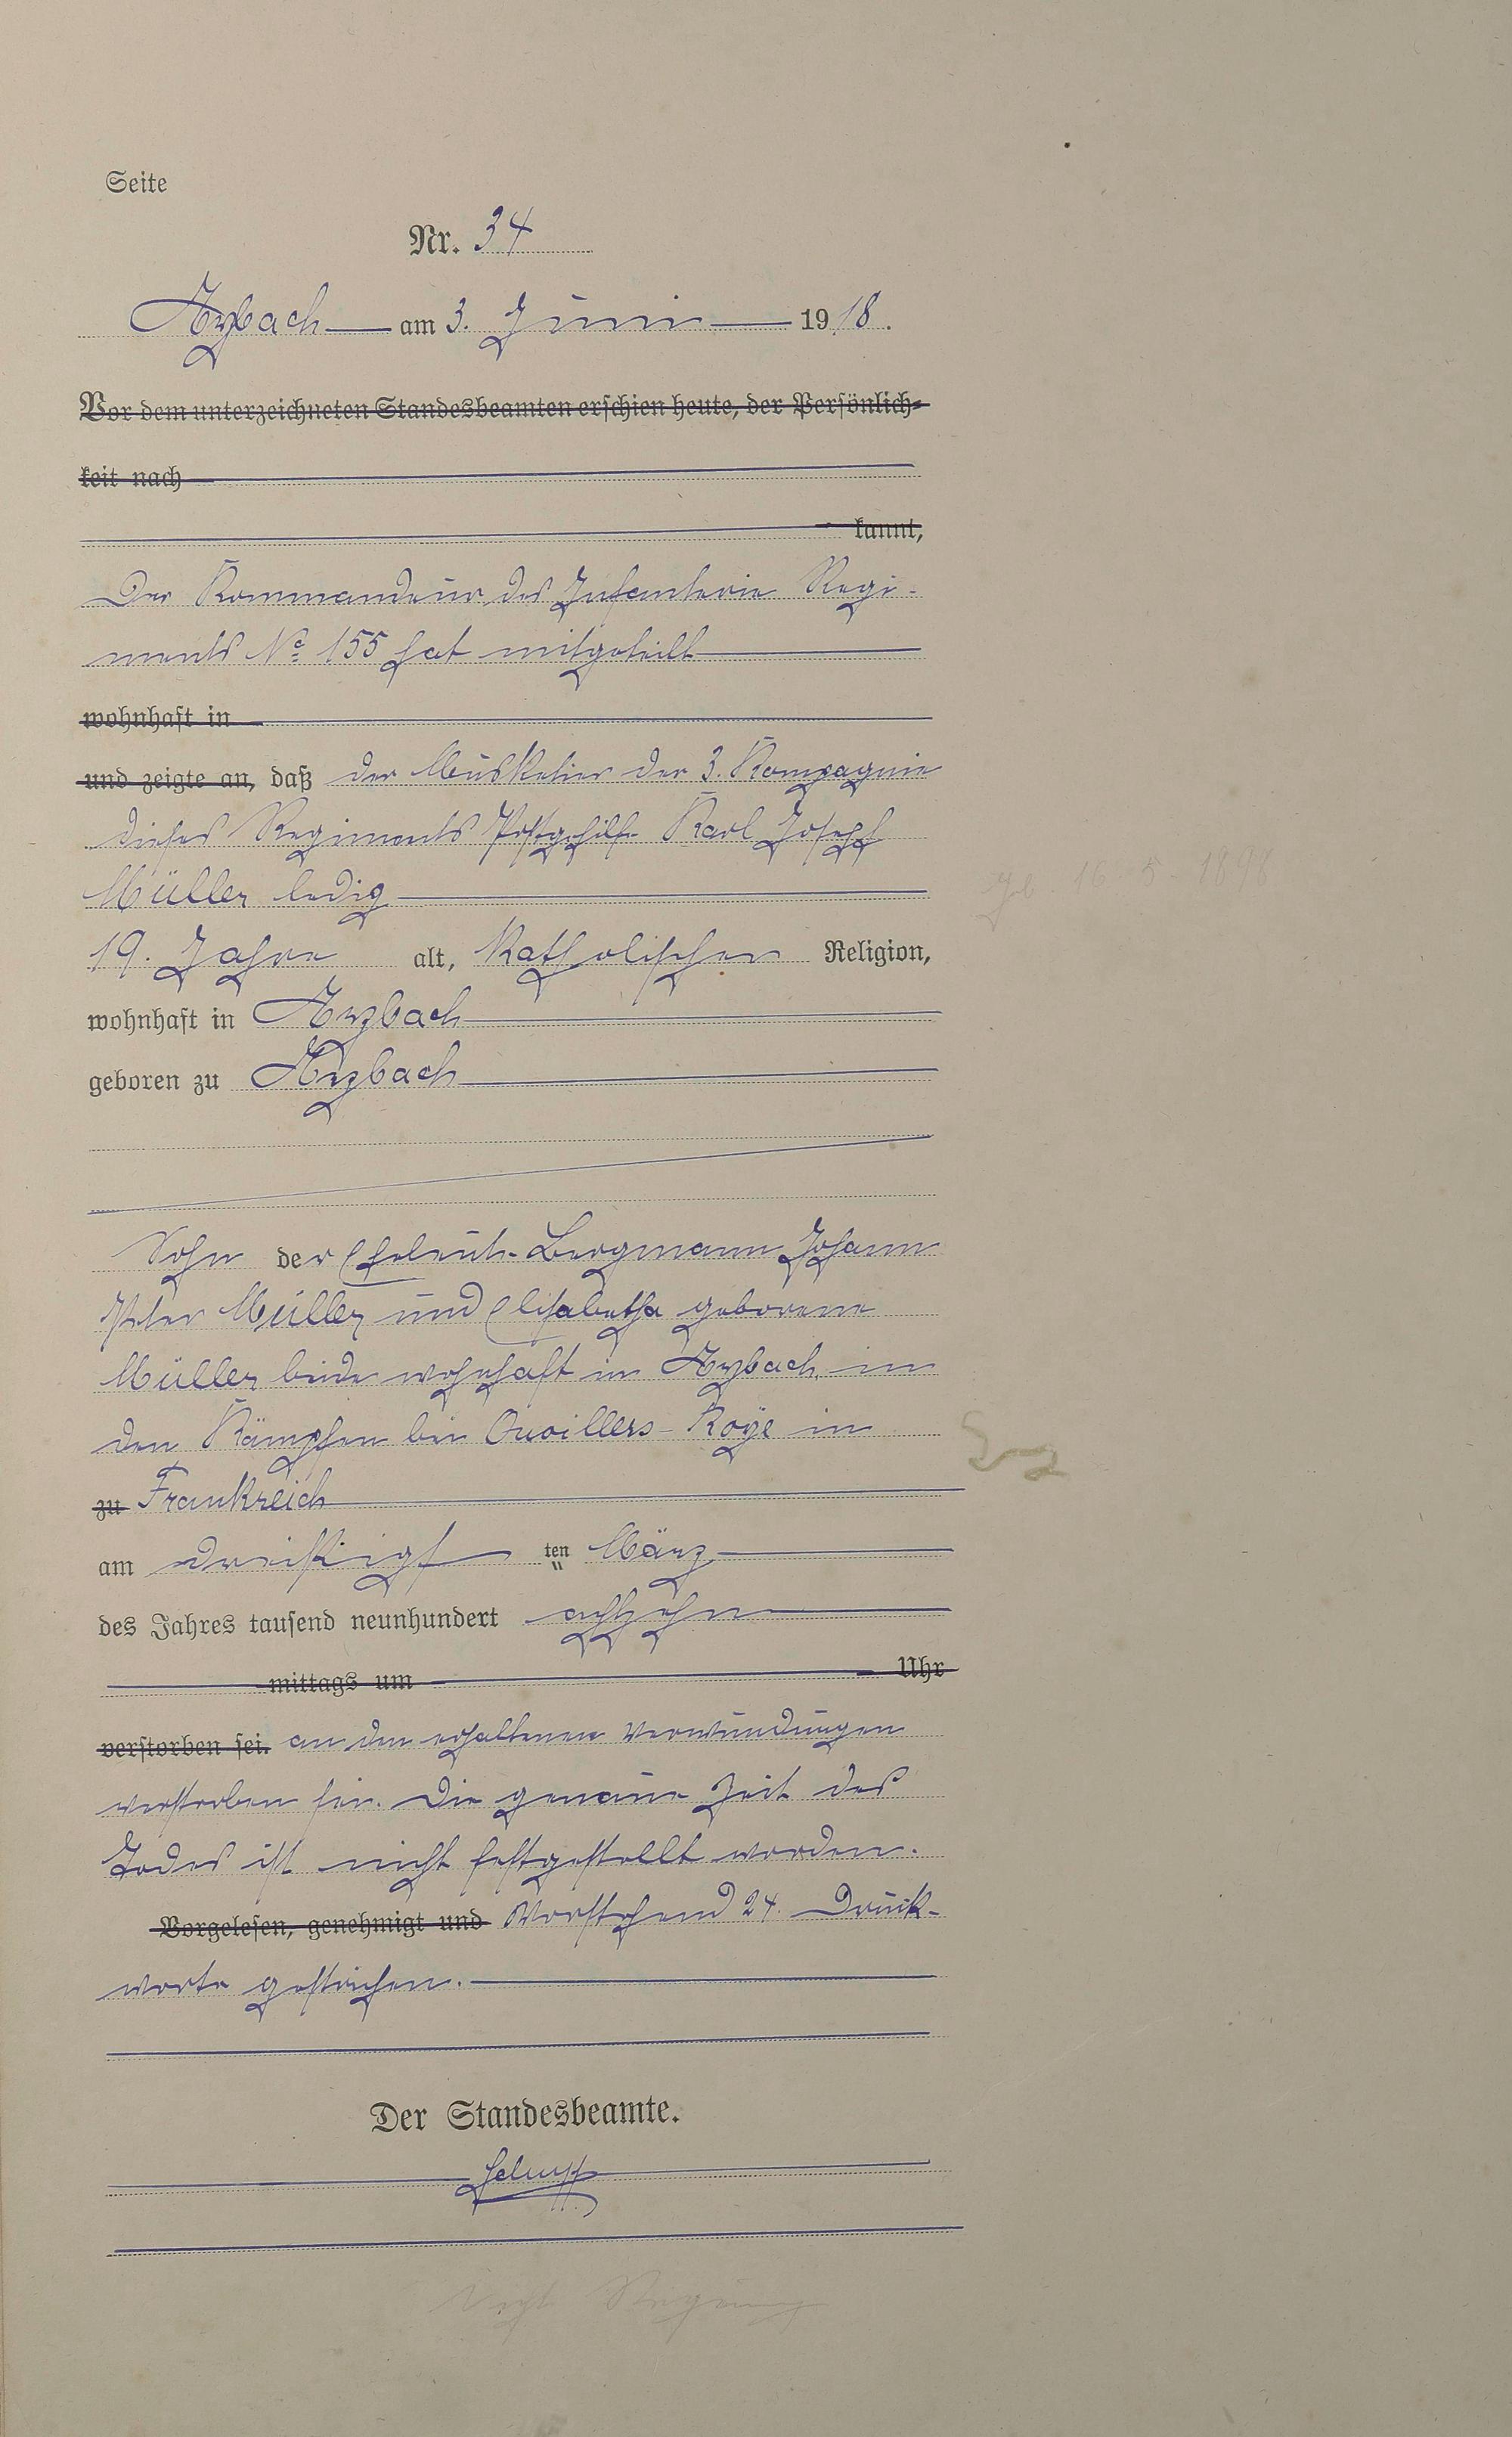 Seite
Nr. 34
Arzbach am 3. Juni 1918.
Vor dem unterzeichneten Standesbeamten erschien heute, der Persönlich-
keit nach
kannt,
Der Kommandeur des Infanterie Regi-
ments No 155 hat mitgeteilt
wohnhaft in
und zeigte an, daß der Musketier der 3. Kompagnie
dieses Regiments Postgehilfe Karl Joseph
Müller ledig
19. Jahre alt, katholischer Religion,
wohnhaft in Arzbach
geboren zu Arzbach
Sohn der Eheleute Bergmann Johann
Peter Müller und Elisabetha geborene
Müller beide wohnhaft in Arzbach, in
den Kämpfen bei Orvillers-Roye in
zu Frankreich
am dreißigsten März
des Jahres tausend neunhundert achtzehn
mittags um Uhr
verstorben sei. an den erhaltenen Verwundungen
verstorben sei. Die genaue Zeit des
Todes ist nicht festgestellt worden.
Vorgelesen, genehmigt und Vorstehend 24. Druck-
worte gestrichen.
Der Standesbeamte.
Geb 16-5-1898